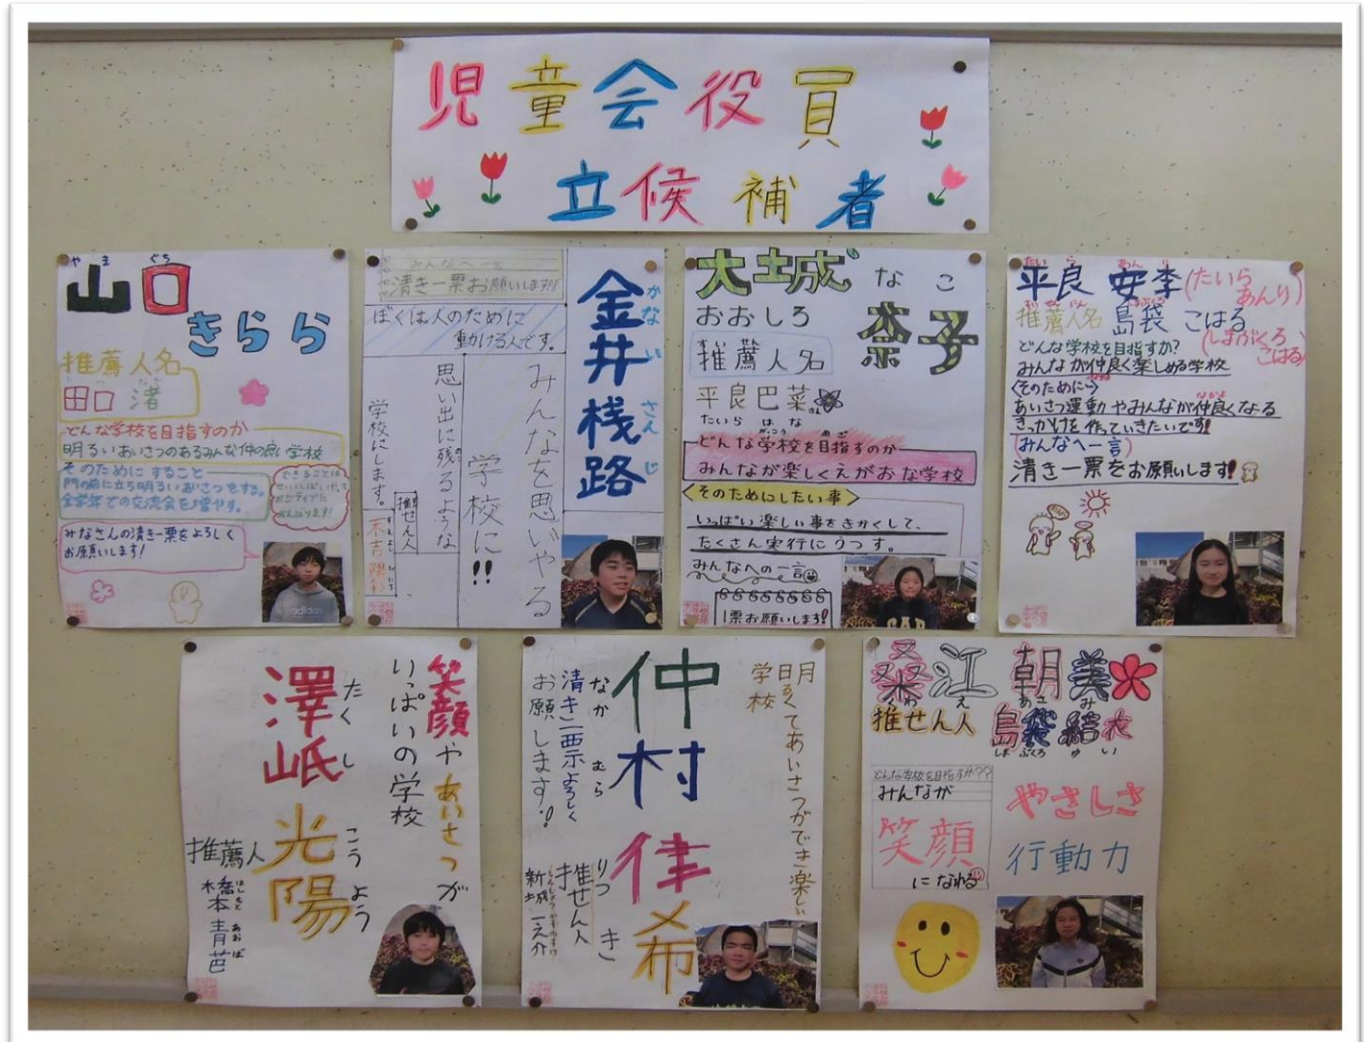 児童会役員
立候補者
やま ぐち
山口
きらら
推薦人名
田口 渚
どんな学校を目指すのか
明るいあいさつのあるみんな仲の良い学校
そのためにすること
門の前に立ち明るいあいさつをする。
全学年での交流会を増やす。
できることは
せいいっぱいやって
ポジティブに
がんばります!
みなさんの清き一票をよろしく
お願いします!
かな い さん じ
金井桟路
みんなへ一言
清き一票お願いします!!!
ぼくは人のために
動ける人です。
みんなを思いやる
学校に!!
思い出に残るような
学校にします。
推せん人
大城 なこ
おおしろ 奈子
推薦人名
平良巴菜さん
たいら はな
どんな学校を目指すのか
みんなが楽しくえがおな学校
そのためにしたい事
いっぱい楽しい事をきかくして、
たくさん実行にうつす。
みんなへの一言
1票お願いします!
たい ら あん り
平良 安李(たいら
あんり)
すいせんにん しまぶくろ
推薦人名 島袋 こはる
(しまぶくろ
こはる)
どんな学校を目指すか?
みんなが仲良く楽しめる学校
〈そのために〉
あいさつ運動やみんなが仲良くなる
きっかけを作っていきたいです!
(みんなへ一言)
清き一票をお願いします!
笑顔やあいさつが
いっぱいの学校
たくし こうよう
澤岻 光陽
推薦人
はしもと あおば
橋本 青芭
明るくてあいさつができ楽しい
学校
なか むら りつ き
仲村 律希
清き一票よろしく
お願いします!
推せん人
新城 一之介
くわ え あさ み
桑江 朝美
推せん人 島袋 結衣
しまぶくろ ゆい
どんな学校を目指すか??
みんなが
笑顔
になれる
やさしさ
行動力